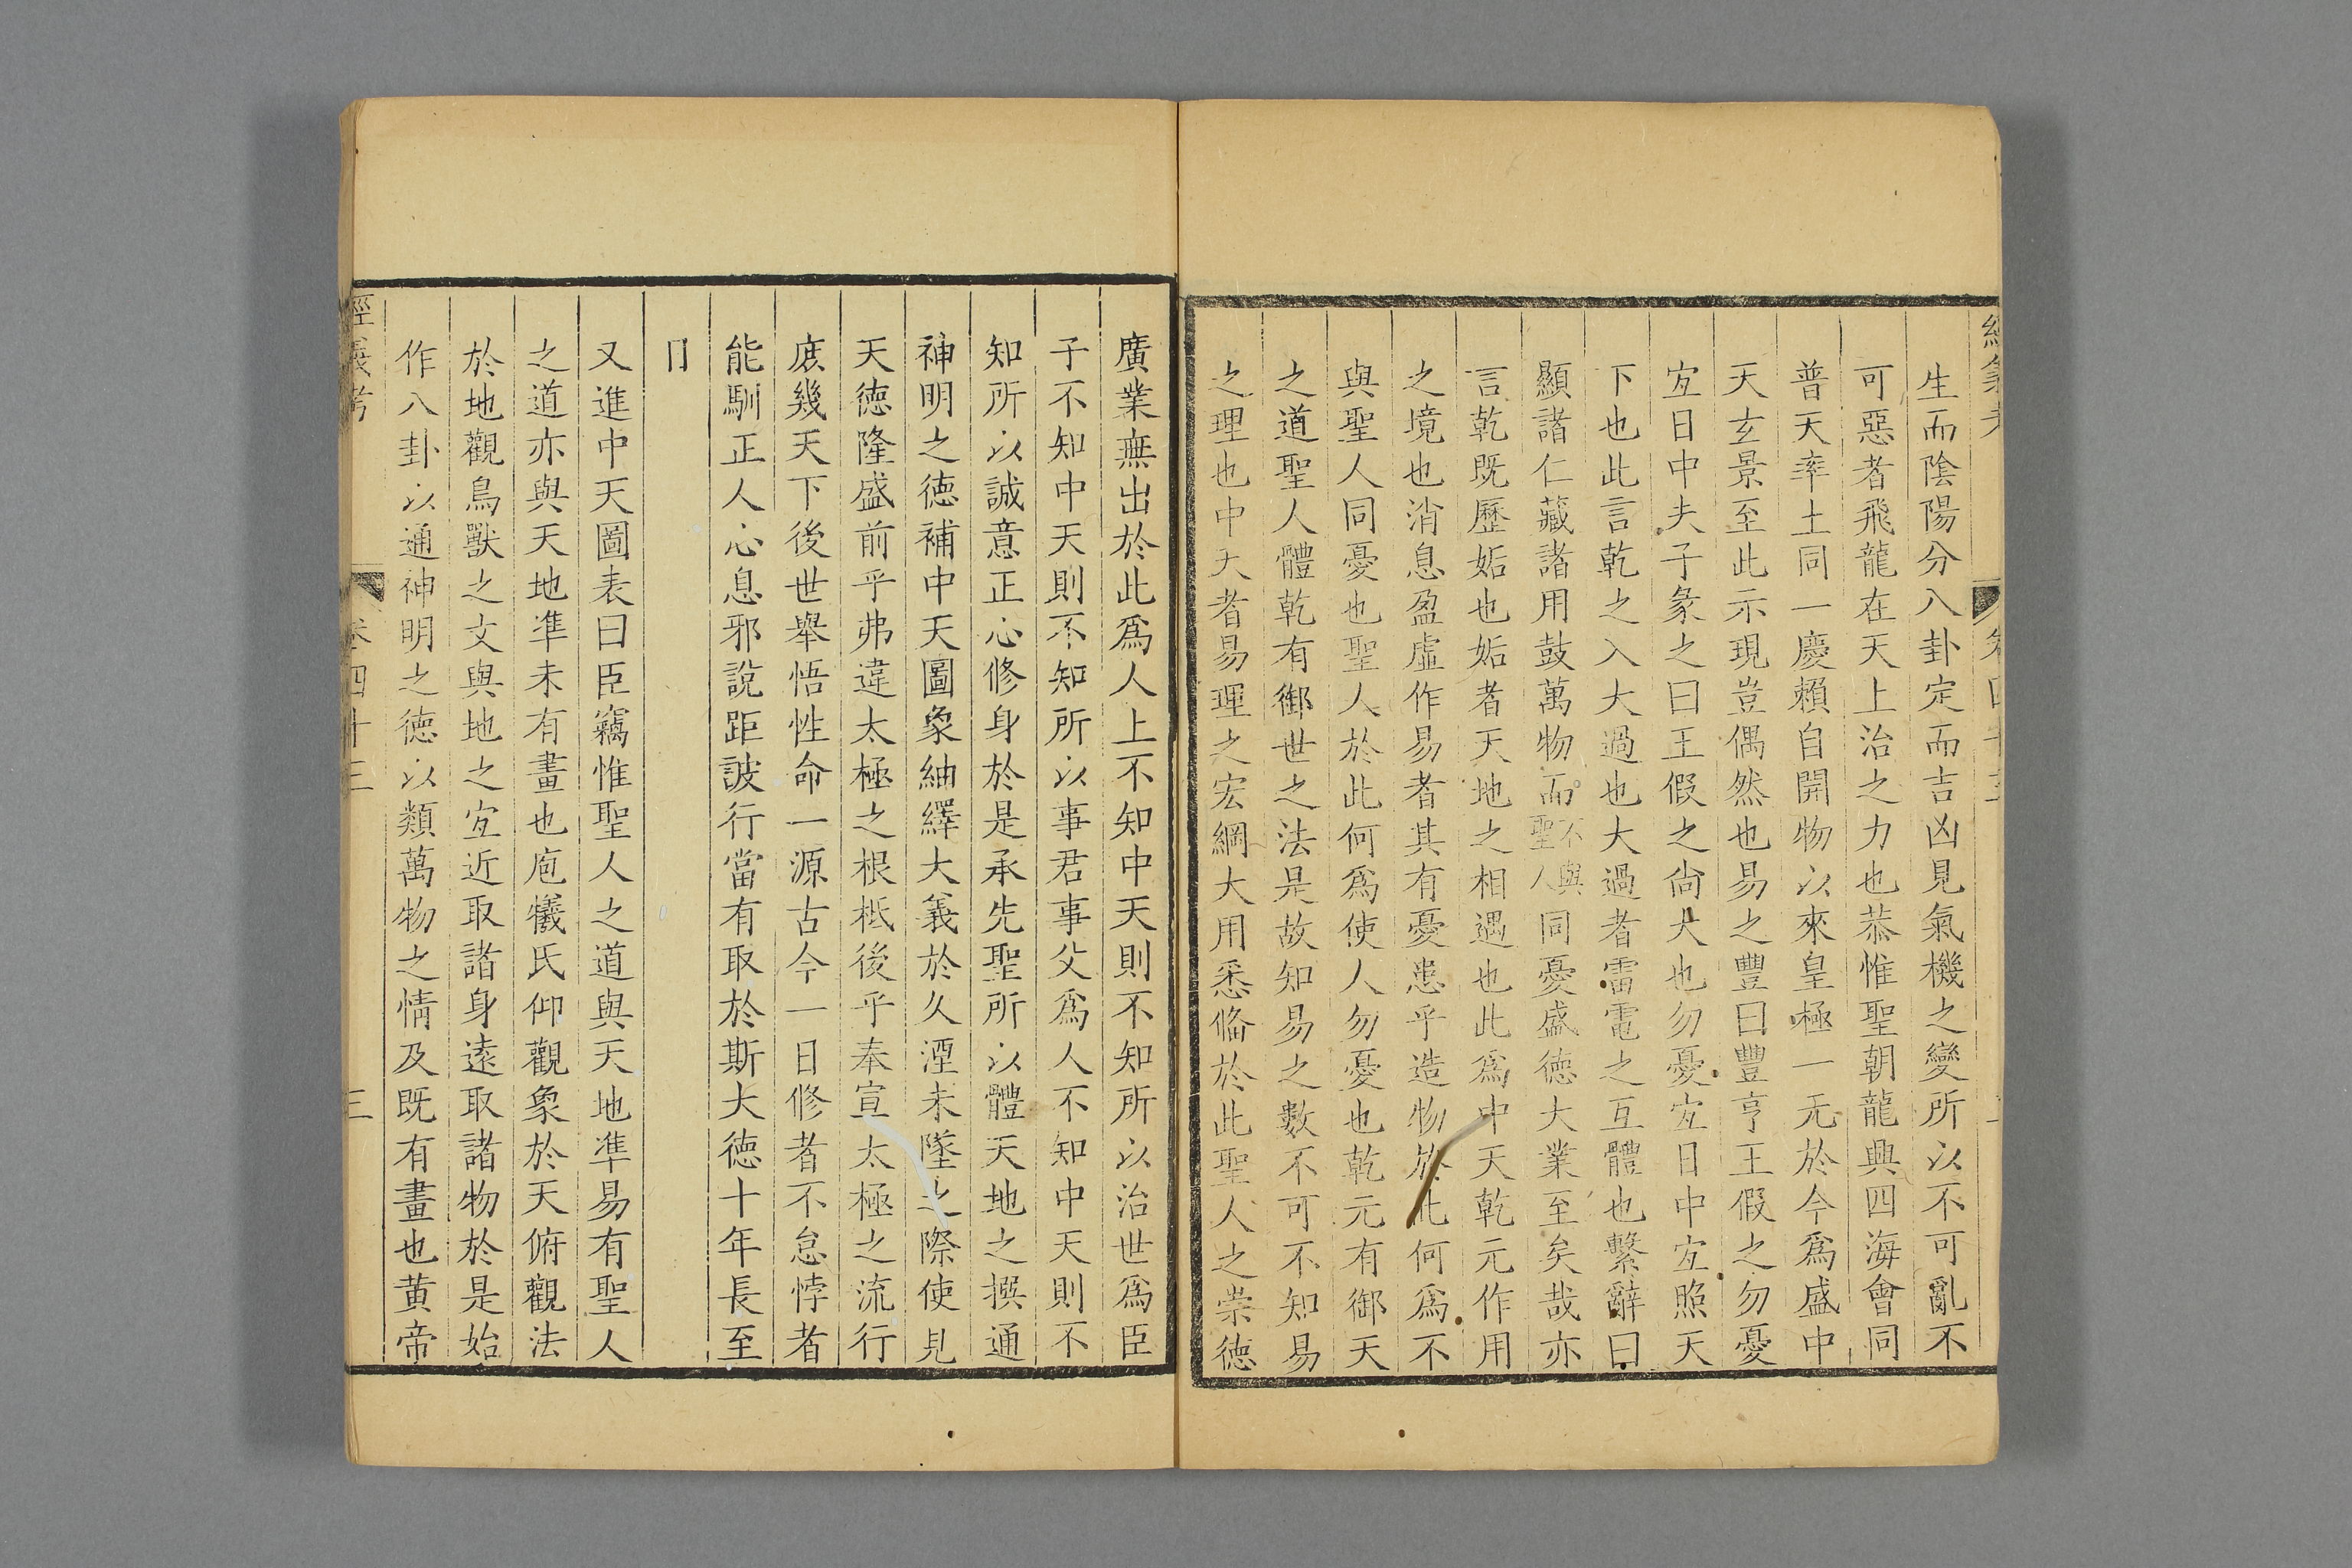 生而陰陽分八卦定而吉凶見氣機之變所以不可亂不
可惡者飛龍在天上治之力也恭惟聖朝龍興四海會同
普天率土同一慶賴自開物以來皇極一元於今爲盛中
天玄景至此示現豈偶然也易之豐曰豐亨王假之勿憂
宐日中夫子彖之曰王假之尙大也勿憂宐日中宐照天
下也此言乾之入大過也大過者雷電之互體也繫辭曰
顯諸仁藏諸用鼓萬物而不與聖人同憂盛德大業至矣哉亦
言乾既歷姤也姤者天地之相遇也此爲中天乾元作用
之境也消息盈虛作易者其有憂患乎造物於此何爲不
與聖人同憂也聖人於此何爲使人勿憂也乾元有御天
之道聖人體乾有御世之法是故知易之數不可不知易
之理也中天者易理之宏綱大用悉俻於此聖人之崇德
廣業無出於此爲人上不知中天則不知所以治世爲臣
子不知中天則不知所以事君事父爲人不知中天則不
知所以誠意正心修身於是承先聖所以體天地之撰通
神明之德補中天圖象紬繹大義於久湮未墜之際使見
天德隆盛前乎弗違太極之根柢後乎奉宣太極之流行
庶幾天下後世舉悟性命一源古今一日修者不怠悖者
能馴正人心息邪說距詖行當有取於斯大德十年長至
日
又進中天圖表曰臣竊惟聖人之道與天地準易有聖人
之道亦與天地準未有畫也庖犧氏仰觀象於天俯觀法
於地觀鳥獸之文與地之宐近取諸身遠取諸物於是始
作八卦以通神明之德以類萬物之情及既有畫也黃帝
經義考 卷四十三 三